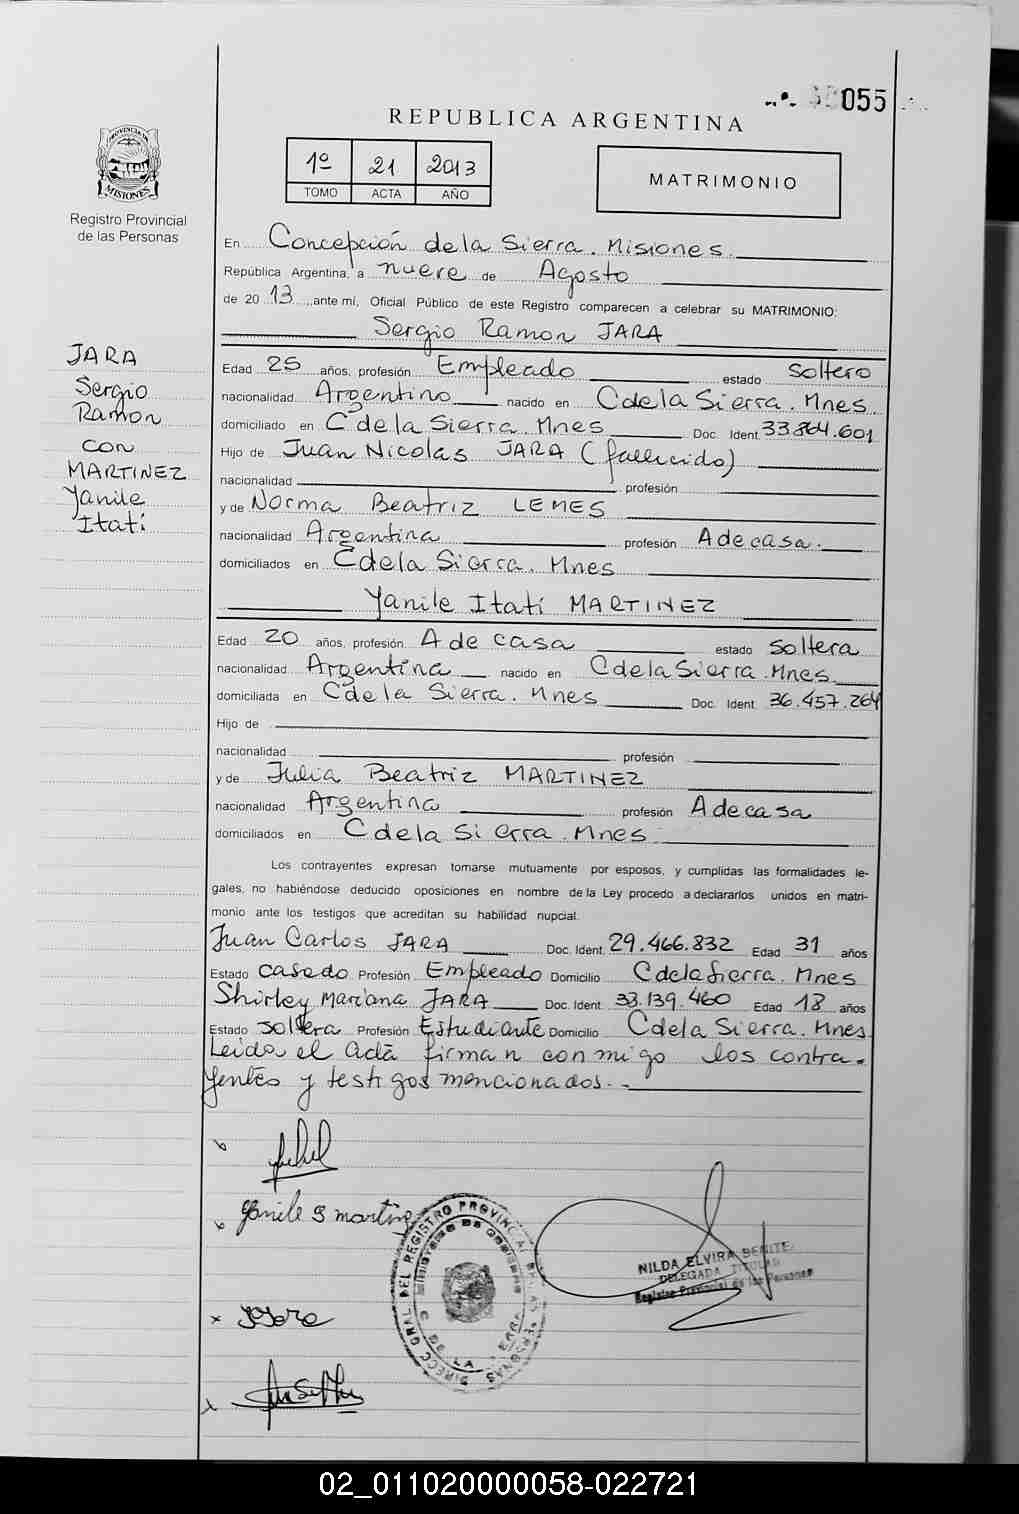 055
REPUBLICA ARGENTINA
PROVINCIA DE
MISIONES
Registro Provincial
de las Personas
1º 21 2013
TOMO ACTA AÑO
MATRIMONIO
En Concepción de la Sierra. Misiones.
República Argentina, a nueve de Agosto
de 20 13, ante mí, Oficial Público de este Registro comparecen a celebrar su MATRIMONIO:
Sergio Ramon JARA
JARA
Sergio
Ramon
con
MARTINEZ
Yanile
Itatí
Edad 25 años, profesión Empleado estado soltero
nacionalidad Argentino nacido en C de la Sierra. Mnes.
domiciliado en C de la Sierra. Mnes Doc. Ident. 33.864.601
Hijo de Juan Nicolas JARA (fallecido)
nacionalidad profesión
y de Norma Beatriz LEMES
nacionalidad Argentina profesión A de casa.
domiciliados en C de la Sierra. Mnes
Yanile Itatí MARTINEZ
Edad 20 años, profesión A de casa estado soltera
nacionalidad Argentina nacido en C de la Sierra. Mnes.
domiciliada en C de la Sierra. Mnes Doc. Ident. 36.457.264
Hijo de
nacionalidad profesión
y de Julia Beatriz MARTINEZ
nacionalidad Argentina profesión A de casa
domiciliados en C de la Sierra. Mnes
Los contrayentes expresan tomarse mutuamente por esposos, y cumplidas las formalidades le-
gales, no habiéndose deducido oposiciones en nombre de la Ley procedo a declararlos unidos en matri-
monio ante los testigos que acreditan su habilidad nupcial.
Juan Carlos JARA Doc. Ident. 29.466.832 Edad 31 años
Estado casado Profesión Empleado Domicilio C de la Sierra. Mnes
Shirley Mariana JARA Doc. Ident. 38.139.460 Edad 18 años
Estado soltera Profesión Estudiante Domicilio C de la Sierra. Mnes
Leida el acta firman conmigo los contra-
yentes y testigos mencionados.-
Yanile I martinez
DIRECC GRAL DEL REGISTRO PROVINCIAL DE LAS PERSONAS
Ministerio de Gobierno
C DE LA SIERRA
NILDA ELVIRA BENITE
DELEGADA TITULAR
Registro Provincial de las Personas
02_011020000058-022721